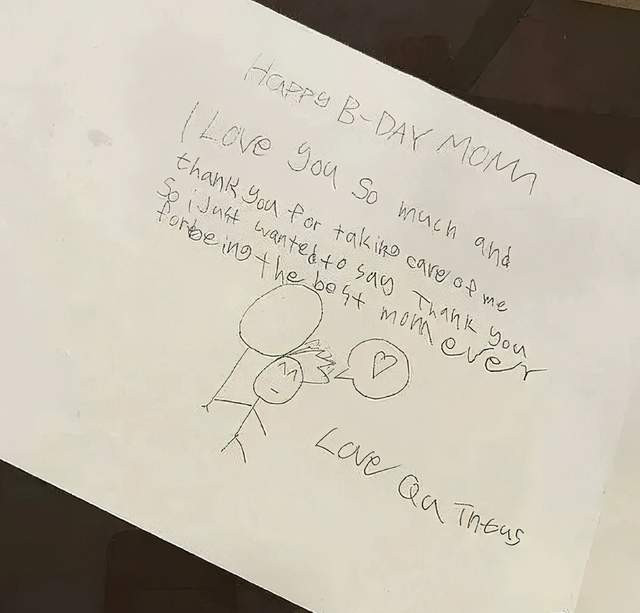 Happy B-DAY MOM
I Love you so much and
thank you for taking care of me
So i Just wanted to say Thank you
for being the best mom ever
Love